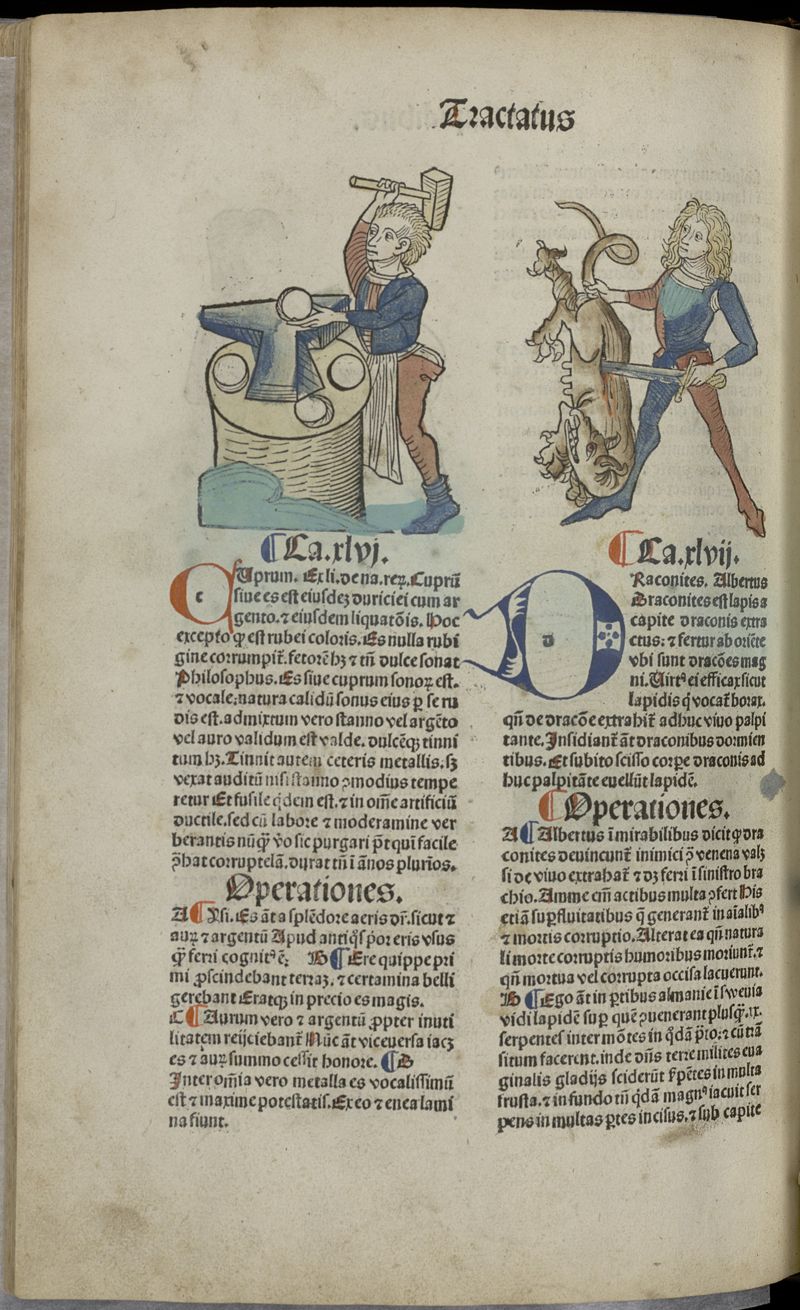 Tractatus
Ca.xlvj.
CUprum. Ex li.de na.reꝝ.Cuprū
siue es est eiusdeꝫ duriciei cum ar
gento.⁊ eiusdem liquatōis. Hoc
excepto ꝙ est rubei coloris. Es nulla rubi
gine corrumpit̄.fetorē hꝫ ⁊ tn̄ dulce sonat
Philosophus. Es siue cuprum sonoꝝ est.
⁊ vocale:natura calidū sonus eius ꝑ se ru
dis est.admixtum vero stanno vel argēto
vel auro validum est valde. dulcēqꝫ tinni
tum hꝫ. Tinnit autem ceteris metallis.sꝫ
vexat auditū nisi stanno ꝯmodius tempe
retur Et fusile qdem est.⁊ in om̄e artificiū
ductile.sed cū labore ⁊ moderamine ver
berantis nūqꝫ vo sic purgari pt̄ quī facile
ꝓhat corruptelā.durat tn̄ ī ānos plurīos.
Operationes.
A Ysi. Es āt a splēdore aeris dr̄.sicut ⁊
auꝝ ⁊ argentū Apud antiqs pōr eris vsus
qꝫ ferri cognitꝰ ē: B Ere quippe pri
mi ꝓscindebant terraꝫ.⁊ certamina belli
gerebant Eratqꝫ in precio es magis.
C Aurum vero ⁊ argentū ꝓpter inuti
litatem reijciebant̄ Nūc āt viceuersa iacꝫ
es ⁊ auꝝ summo cessit honore. D
Inter om̄ia vero metalla es vocalissimū
est ⁊ maxime potestatis. Ex eo ⁊ enea lami
na fiunt.
Ca.xlvij.
DRaconites. Albertus
Draconites est lapis a
capite draconis extra
ctus:⁊ fertur ab oriēte
vbi sunt dracōes mag
ni. Uirtꝰ ei efficax sicut
lapidis q̄ vocat̄ borax.
qn̄ de dracōe extrahit̄ adhuc viuo palpi
tante. Insidiant̄ āt draconibus dormien
tibus. Et subito scisso corꝑe draconis ad
huc palpitāte euellūt lapidē.
Operationes.
A Albertus ī mirabilibus dicit ꝙ dra
conites deuincunt̄ inimici ⁊ ꝯ venena valꝫ
si de viuo extrahat̄ ⁊ dꝫ ferri ī sinistro bra
chio. Amme em̄ actibus multa ꝯfert His
etiā suꝑfluitatibus q̄ generant̄ in aīalibꝰ
⁊ mortis corruptio. Alterat ea qn̄ natura
li morte corruptis humoribus moriunt̄.⁊
qn̄ mortua vel corrupta occisa lacuerunt.
B Ego āt in ꝑtibus almanie ī sweuia
vidi lapidē suꝑ quē ꝯuenerant plusqꝫ.ix.
serpentes inter mōtes in qdā ꝑto:⁊ cū trā
situm facerent.inde dn̄s terre milites eua
ginalis gladijs sciderūt sꝑētes in multa
frusta.⁊ in fundo tn̄ qdā magnꝰ iacuit ser
pens in multas ꝑtes incisus.⁊ sub capite